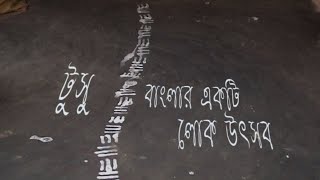 টুসু
বাংলার একটি
লোক উৎসব